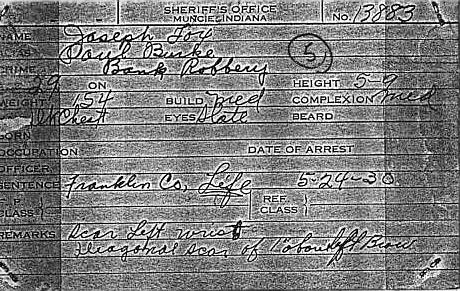 SHERIFF'S OFFICE
MUNCIE, INDIANA No. 13883
NAME Joseph Fox
Paul Burke
CRIME Bank Robbery 5
29 ON HEIGHT 5-9
WEIGHT 154 BUILD Med COMPLEXION Med
EYES Slate BEARD
BORN
OCCUPATION DATE OF ARREST
OFFICER
SENTENCE Franklin Co, Life 5-24-30
F P CLASS REF CLASS
REMARKS Scar left wrist
Diagonal scar of 1" above left Brow